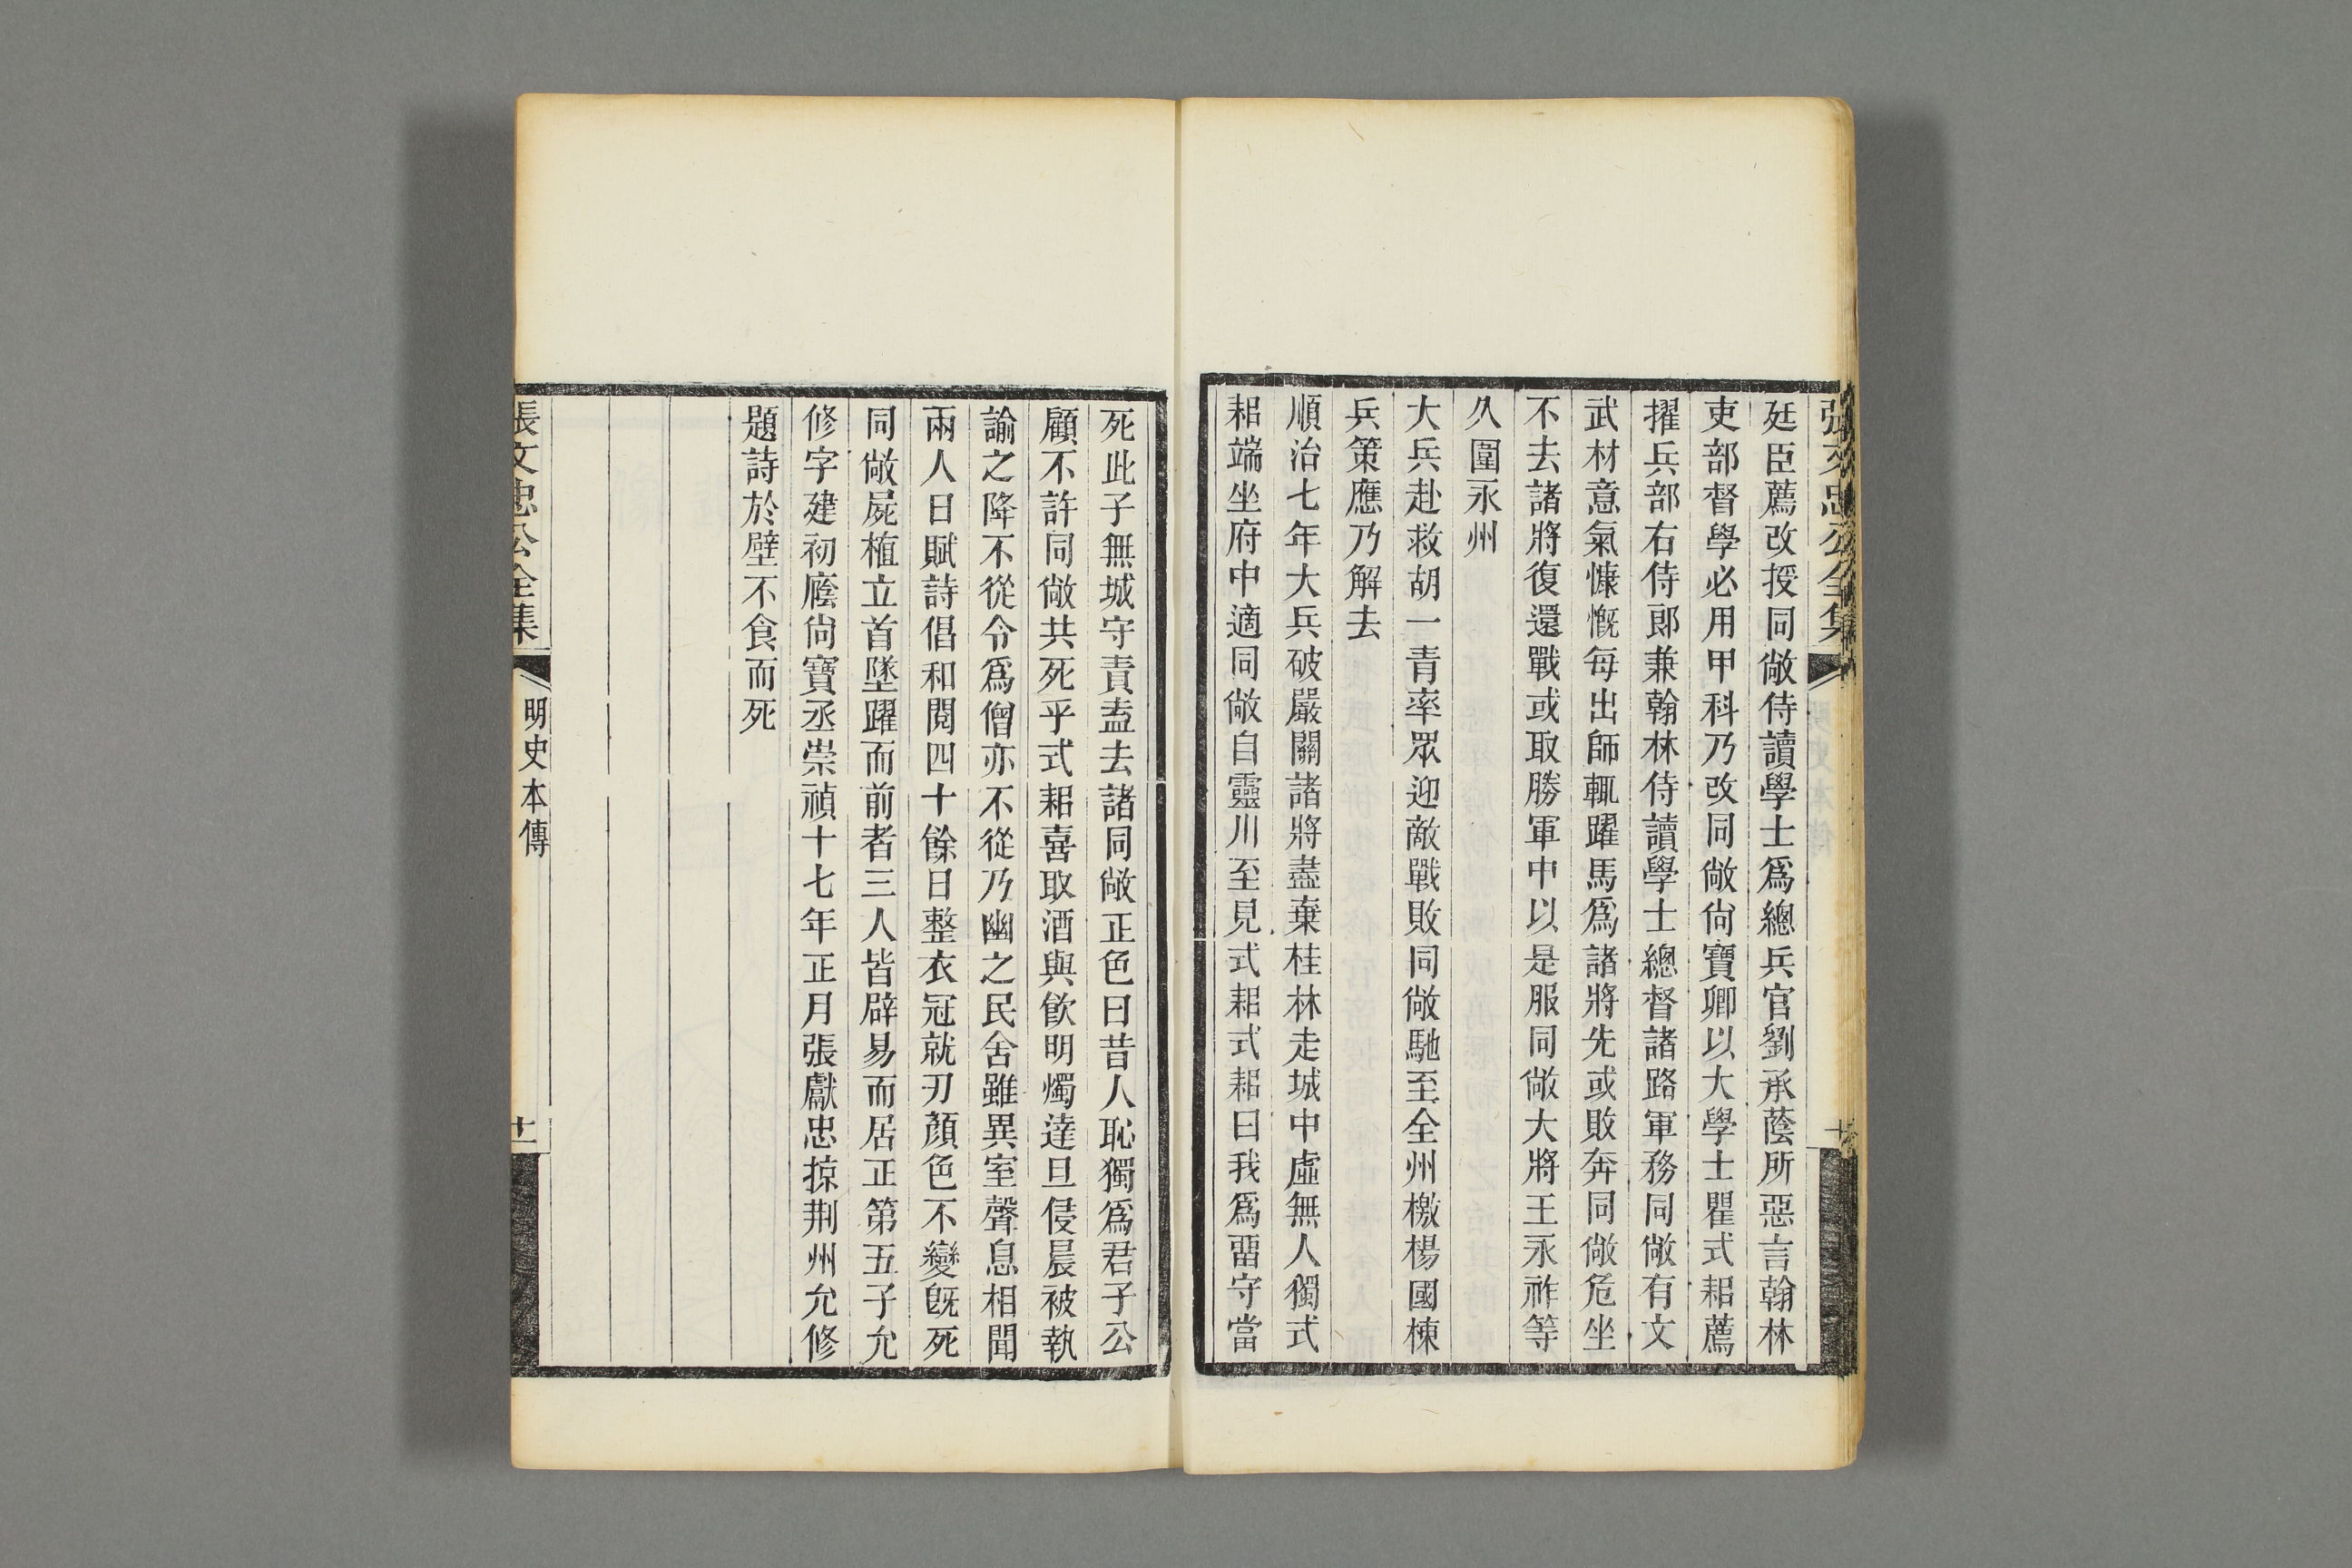 張文忠公全集
廷臣薦改授同敞侍讀學士爲總兵官劉承蔭所惡言翰林
吏部督學必用甲科乃改同敞尙寶卿以大學士瞿式耜薦
擢兵部右侍郎兼翰林侍讀學士總督諸路軍務同敞有文
武材意氣慷慨每出師輒躍馬爲諸將先或敗奔同敞危坐
不去諸將復還戰或取勝軍中以是服同敞大將王永祚等
久圍永州
大兵赴救胡一青率眾迎敵戰敗同敞馳至全州檄楊國棟
兵策應乃解去
順治七年大兵破嚴關諸將盡棄桂林走城中虛無人獨式
耜端坐府中適同敞自靈川至見式耜式耜曰我爲畱守當
死此子無城守責盍去諸同敞正色曰昔人恥獨爲君子公
顧不許同敞共死乎式耜喜取酒與飮明燭達旦侵晨被執
諭之降不從令爲僧亦不從乃幽之民舍雖異室聲息相聞
兩人日賦詩倡和閱四十餘日整衣冠就刃顏色不變旣死
同敞屍植立首墜躍而前者三人皆辟易而居正第五子允
修字建初廕尙寶丞崇禎十七年正月張獻忠掠荆州允修
題詩於壁不食而死
張文忠公全集
明史本傳
十一